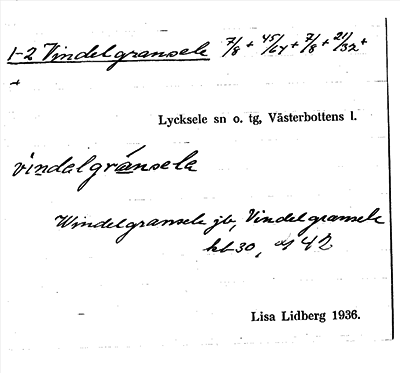 1-2 Vindelgransele 7/8 + 45/64 + 7/8 + 21/32 +
+
Lycksele sn o. tg, Västerbottens l.
vindalgránsela
Windelgransele jb, Vindelgransele
hl 30, 42
Lisa Lidberg 1936.